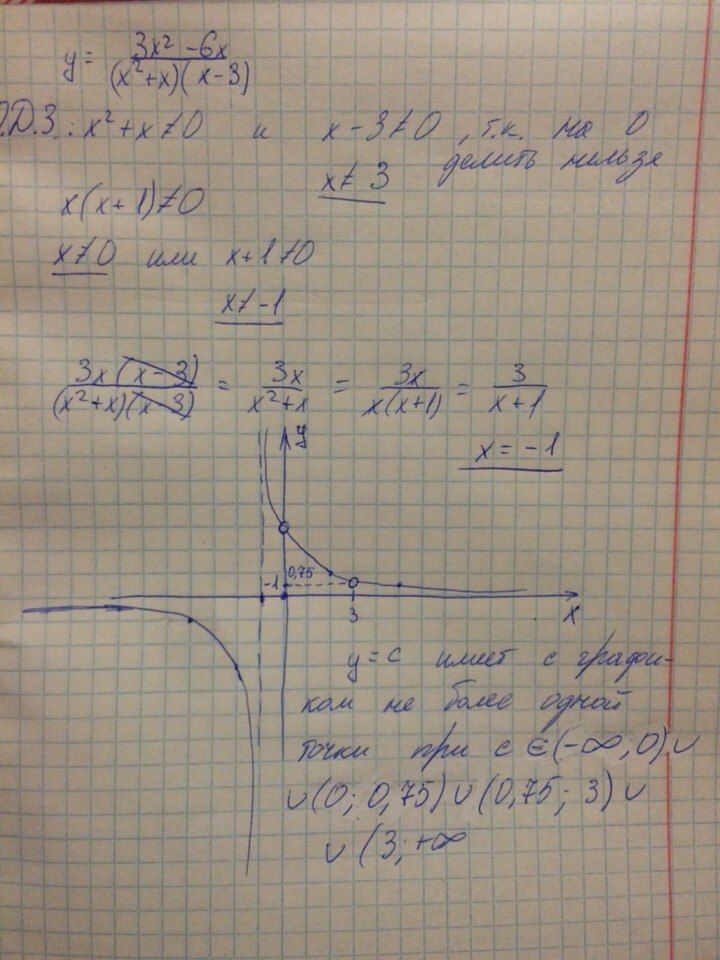 y = (3x² - 6x)/((x² + x)(x - 3))
О.Д.З.: x² + x ≠ 0 и x - 3 ≠ 0, т.к. на 0
делить нельзя
x ≠ 3
x(x + 1) ≠ 0
x ≠ 0 или x + 1 ≠ 0
x ≠ -1
3x(x - 3)/((x² + x)(x - 3)) = 3x/(x² + x) = 3x/(x(x + 1)) = 3/(x + 1)
x = -1
y
0,75
-1
3
x
y = c имеет с графи-
ком не более одной
точки при c ∈ (-∞; 0) ∪
∪ (0; 0,75) ∪ (0,75; 3) ∪
∪ (3; +∞